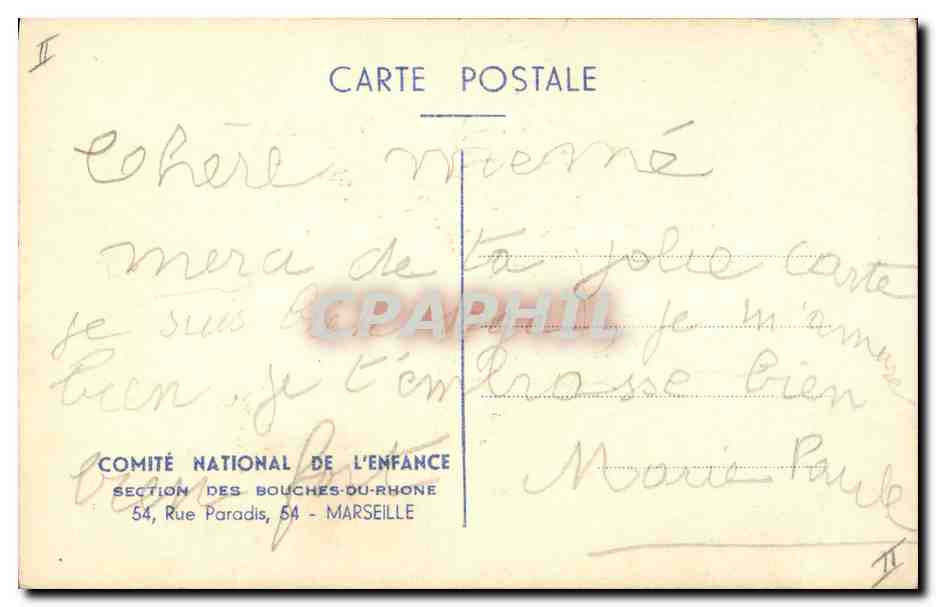 II
CARTE POSTALE
Chère mémé
merci de ta jolie carte
je suis bien je m'amuse
bien je t'embrasse bien
bien fort
Marie Paule
CPAPHIL
COMITÉ NATIONAL DE L'ENFANCE
SECTION DES BOUCHES-DU-RHONE
54, Rue Paradis, 54 - MARSEILLE
II